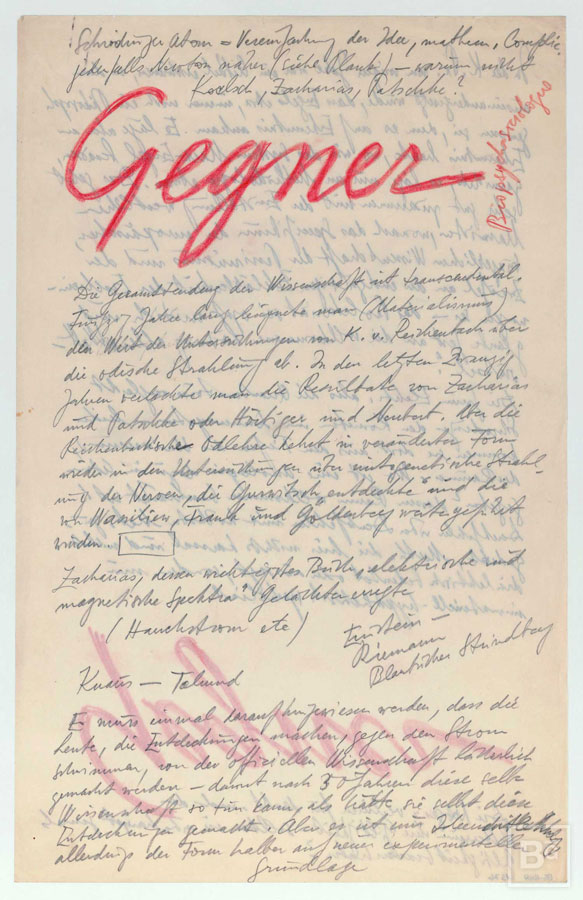 Schrödinger Atom = Vereinfachung der Idee, mathem. Complic.
jedenfalls Newton näher (siehe Planck) – warum nicht
Koelsch, Zacharias, Patschke?
Gegner
Biopsychosociologie
Die Gesamttendenz der Wissenschaft ist transcendental.
Fünfzig Jahre lang leugnete man (Materialismus)
den Wert der Untersuchungen von K. v. Reichenbach über
die odische Strahlung ab. In den letzten zwanzig
Jahren verlachte man die Resultate von Zacharias
und Patschke oder Hörbiger und Neubert. Aber die
Reichenbachsche Odlehre kehrt in veränderter Form
wieder in den Untersuchungen über mitogenetische Strahl-
ung der Nerven, die Gurvitsch „entdeckte" und die
von Wassiliew, Frank und Goldenberg weitergeführt
wurden.
Zacharias, dessen wichtigstes Buch „elektrische und
magnetische Spektra" Gelächter erregte
(Hauchstrom etc)
Einstein –
Riemann
Strindberg
Knaus – Talmud
Es muss einmal darauf hingewiesen werden, dass die
Leute, die Entdeckungen machen, gegen den Strom
schwimmen, von der officiellen Wissenschaft lächerlich
gemacht werden – damit nach 30 Jahren diese selbe
Wissenschaft so tun kann, als hätte sie selbst diese
Entdeckungen gemacht. Aber es ist nur
allerdings der Form halber auf neuer experimenteller
Grundlage